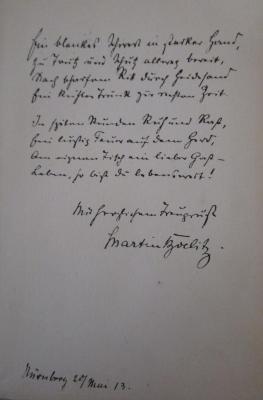 Ein blankes Schwert in starker Hand,
Zu Trutz und Schutz allweg bereit,
Nach scharfem Ritt durch Heidesand
Ein kühler Trunk zur rechten Zeit.
In späten Stunden Ruh und Rast,
Ein lustig Feuer auf dem Herd,
Am eignen Tisch ein lieber Gast –
Leben, so bist du lebenswert!
Mit herzlichem
Martin Boelitz.
Nürnberg 20/ Mai 13.